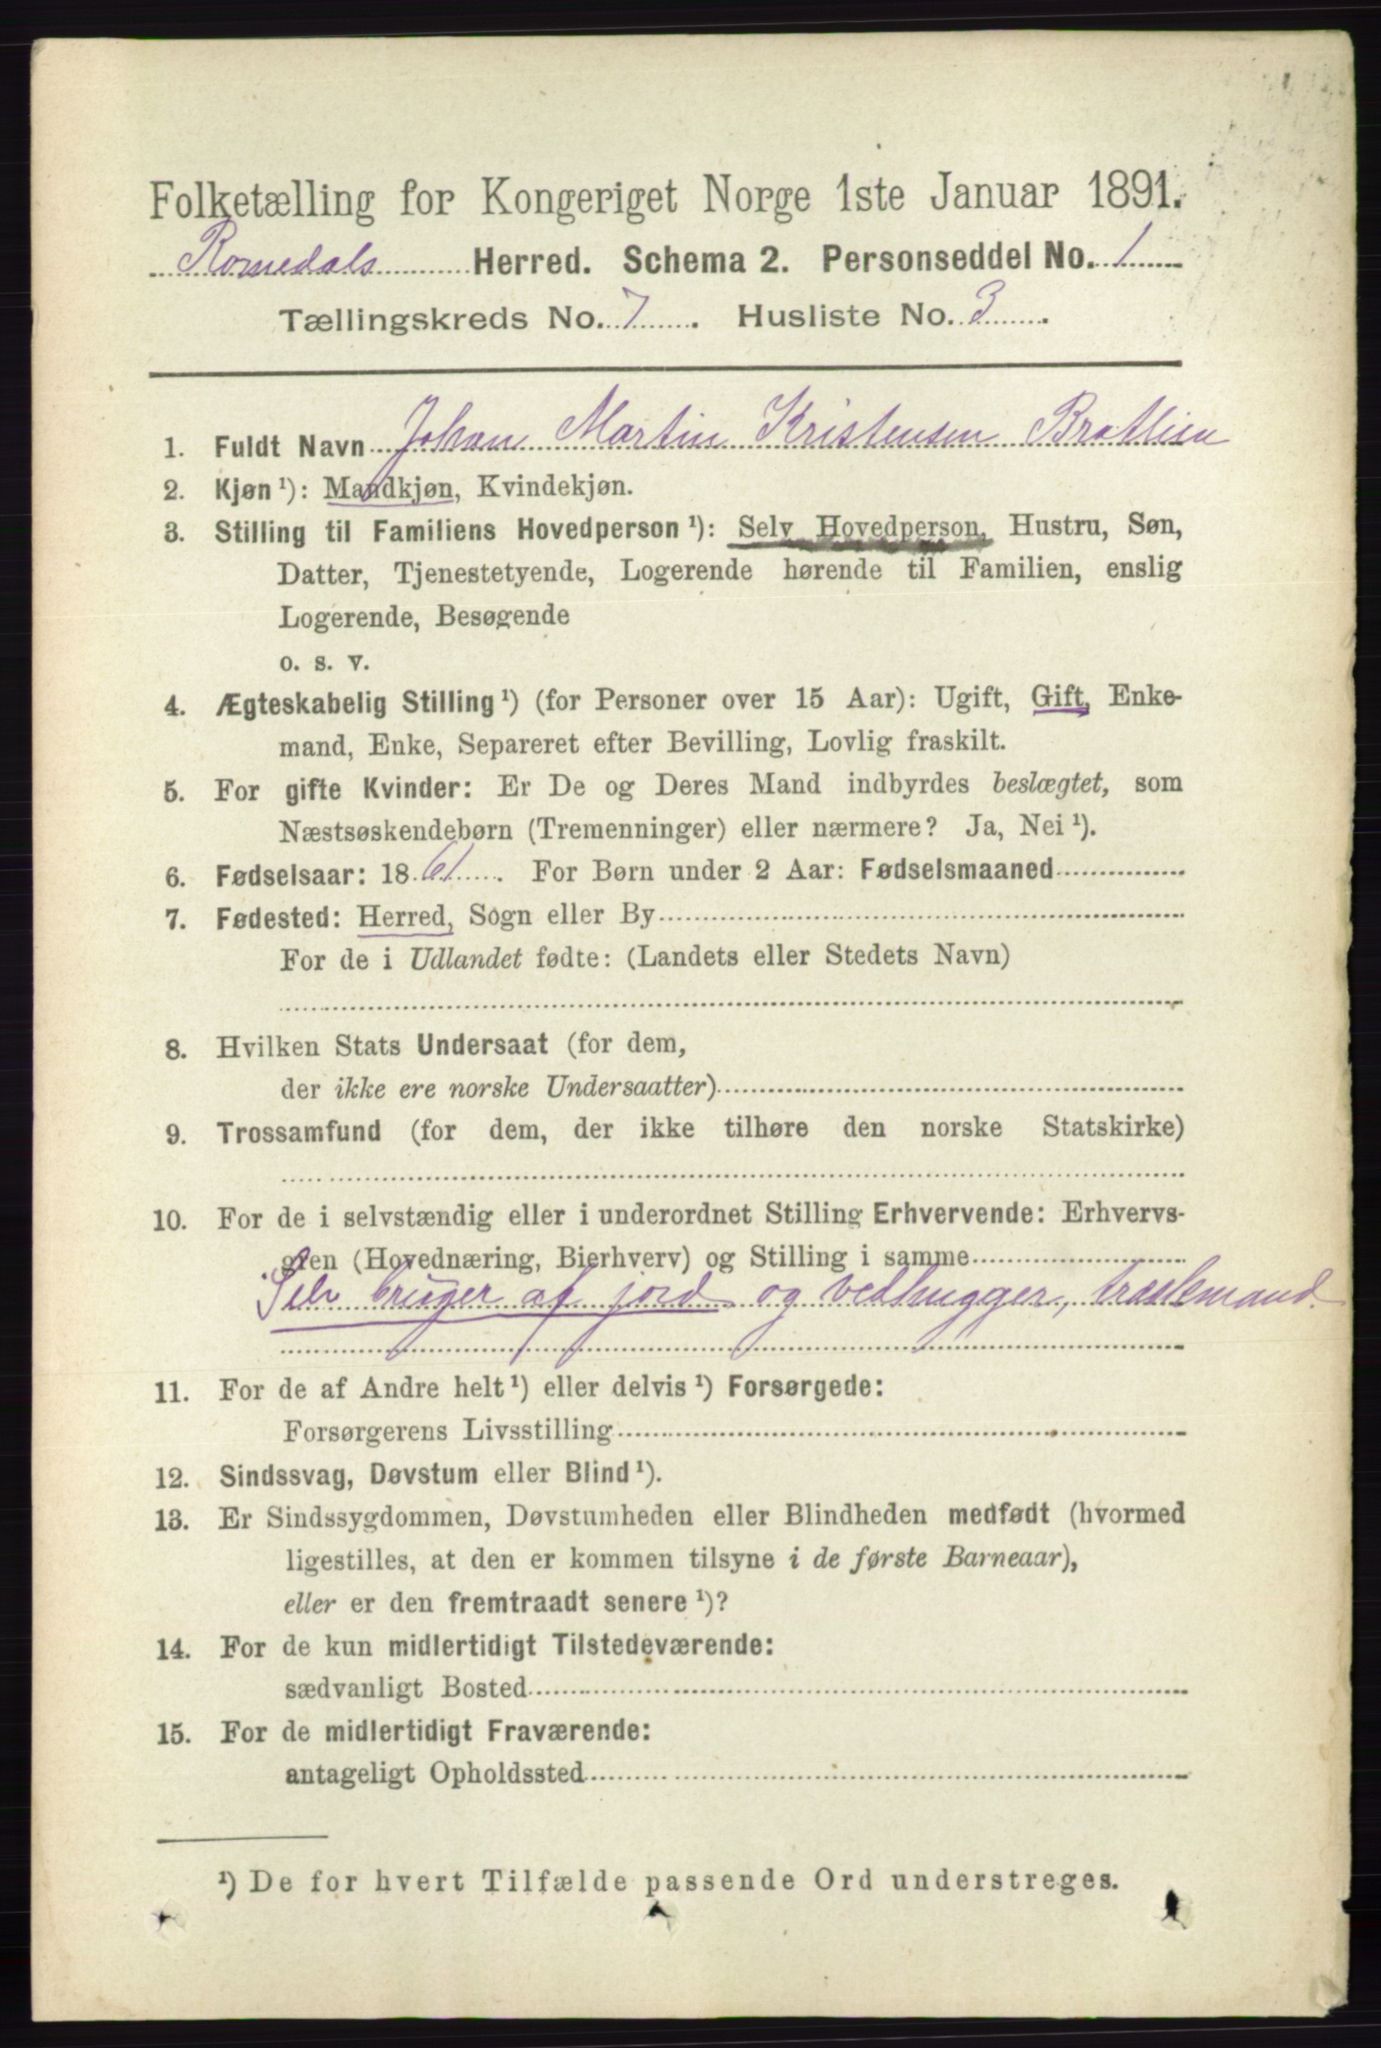 Folketælling for Kongeriget Norge 1ste Januar 1891.
Romedals Herred. Schema 2. Personseddel No. 1
Tællingskreds No. 7. Husliste No. 3.
1. Fuldt Navn Johan Martin Kristensen Bratlien
2. Kjøn ¹): Mandkjøn, Kvindekjøn.
3. Stilling til Familiens Hovedperson ¹): Selv Hovedperson, Hustru, Søn,
Datter, Tjenestetyende, Logerende hørende til Familien, enslig
Logerende, Besøgende
o. s. v.
4. Ægteskabelig Stilling ¹) (for Personer over 15 Aar): Ugift, Gift, Enke-
mand, Enke, Separeret efter Bevilling, Lovlig fraskilt.
5. For gifte Kvinder: Er De og Deres Mand indbyrdes beslægtet, som
Næstsøskendebørn (Tremenninger) eller nærmere? Ja, Nei ¹).
6. Fødselsaar: 1861. For Børn under 2 Aar: Fødselsmaaned
7. Fødested: Herred, Sogn eller By
For de i Udlandet fødte: (Landets eller Stedets Navn)
8. Hvilken Stats Undersaat (for dem,
der ikke ere norske Undersaatter)
9. Trossamfund (for dem, der ikke tilhøre den norske Statskirke)
10. For de i selvstændig eller i underordnet Stilling Erhvervende: Erhvervs-
gren (Hovednæring, Bierhverv) og Stilling i samme
Selv bruger af jord og vedhugger,
11. For de af Andre helt ¹) eller delvis ¹) Forsørgede:
Forsørgerens Livsstilling
12. Sindssvag, Døvstum eller Blind ¹).
13. Er Sindssygdommen, Døvstumheden eller Blindheden medfødt (hvormed
ligestilles, at den er kommen tilsyne i de første Barneaar),
eller er den fremtraadt senere ¹)?
14. For de kun midlertidigt Tilstedeværende:
sædvanligt Bosted
15. For de midlertidigt Fraværende:
antageligt Opholdssted
¹) De for hvert Tilfælde passende Ord understreges.